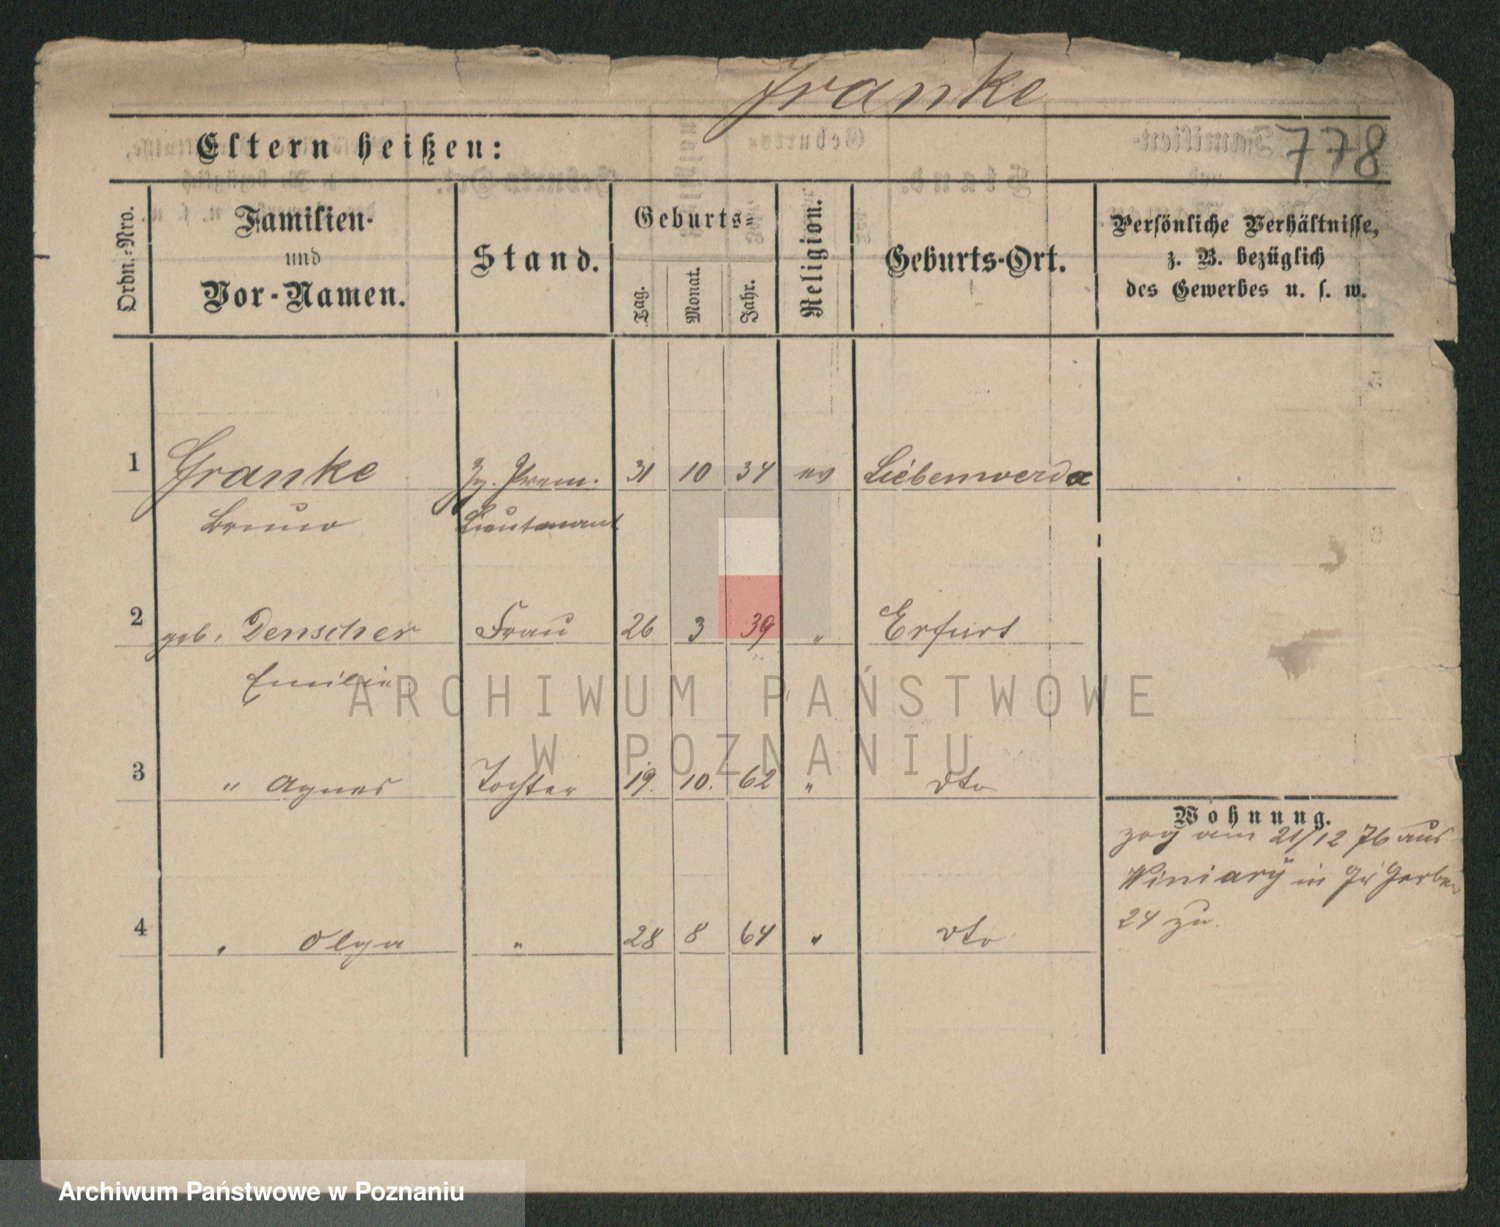 Franke
Eltern heißen:
778
Ordn.-Nro.
Familien-
und
Vor-Namen.
Stand.
Geburts-
Tag.
Monat.
Jahr.
Religion.
Geburts-Ort.
Persönliche Verhältnisse,
z. B. bezüglich
des Gewerbes u. s. w.
1 Franke Prem. 31 10 34 ev Liebenwerda
Bruno Lieutenant
2 geb. Denscher Frau 26 3 39 " Erfurt
Emilie
3 " Agnes Tochter 19. 10. 62 " dto
4 " Olga " 28 8 64 " dto
Wohnung.
zog am 21/12 76 aus
Winiary in Gr Gerber
24 zu.
ARCHIWUM PAŃSTWOWE
W POZNANIU
Archiwum Państwowe w Poznaniu